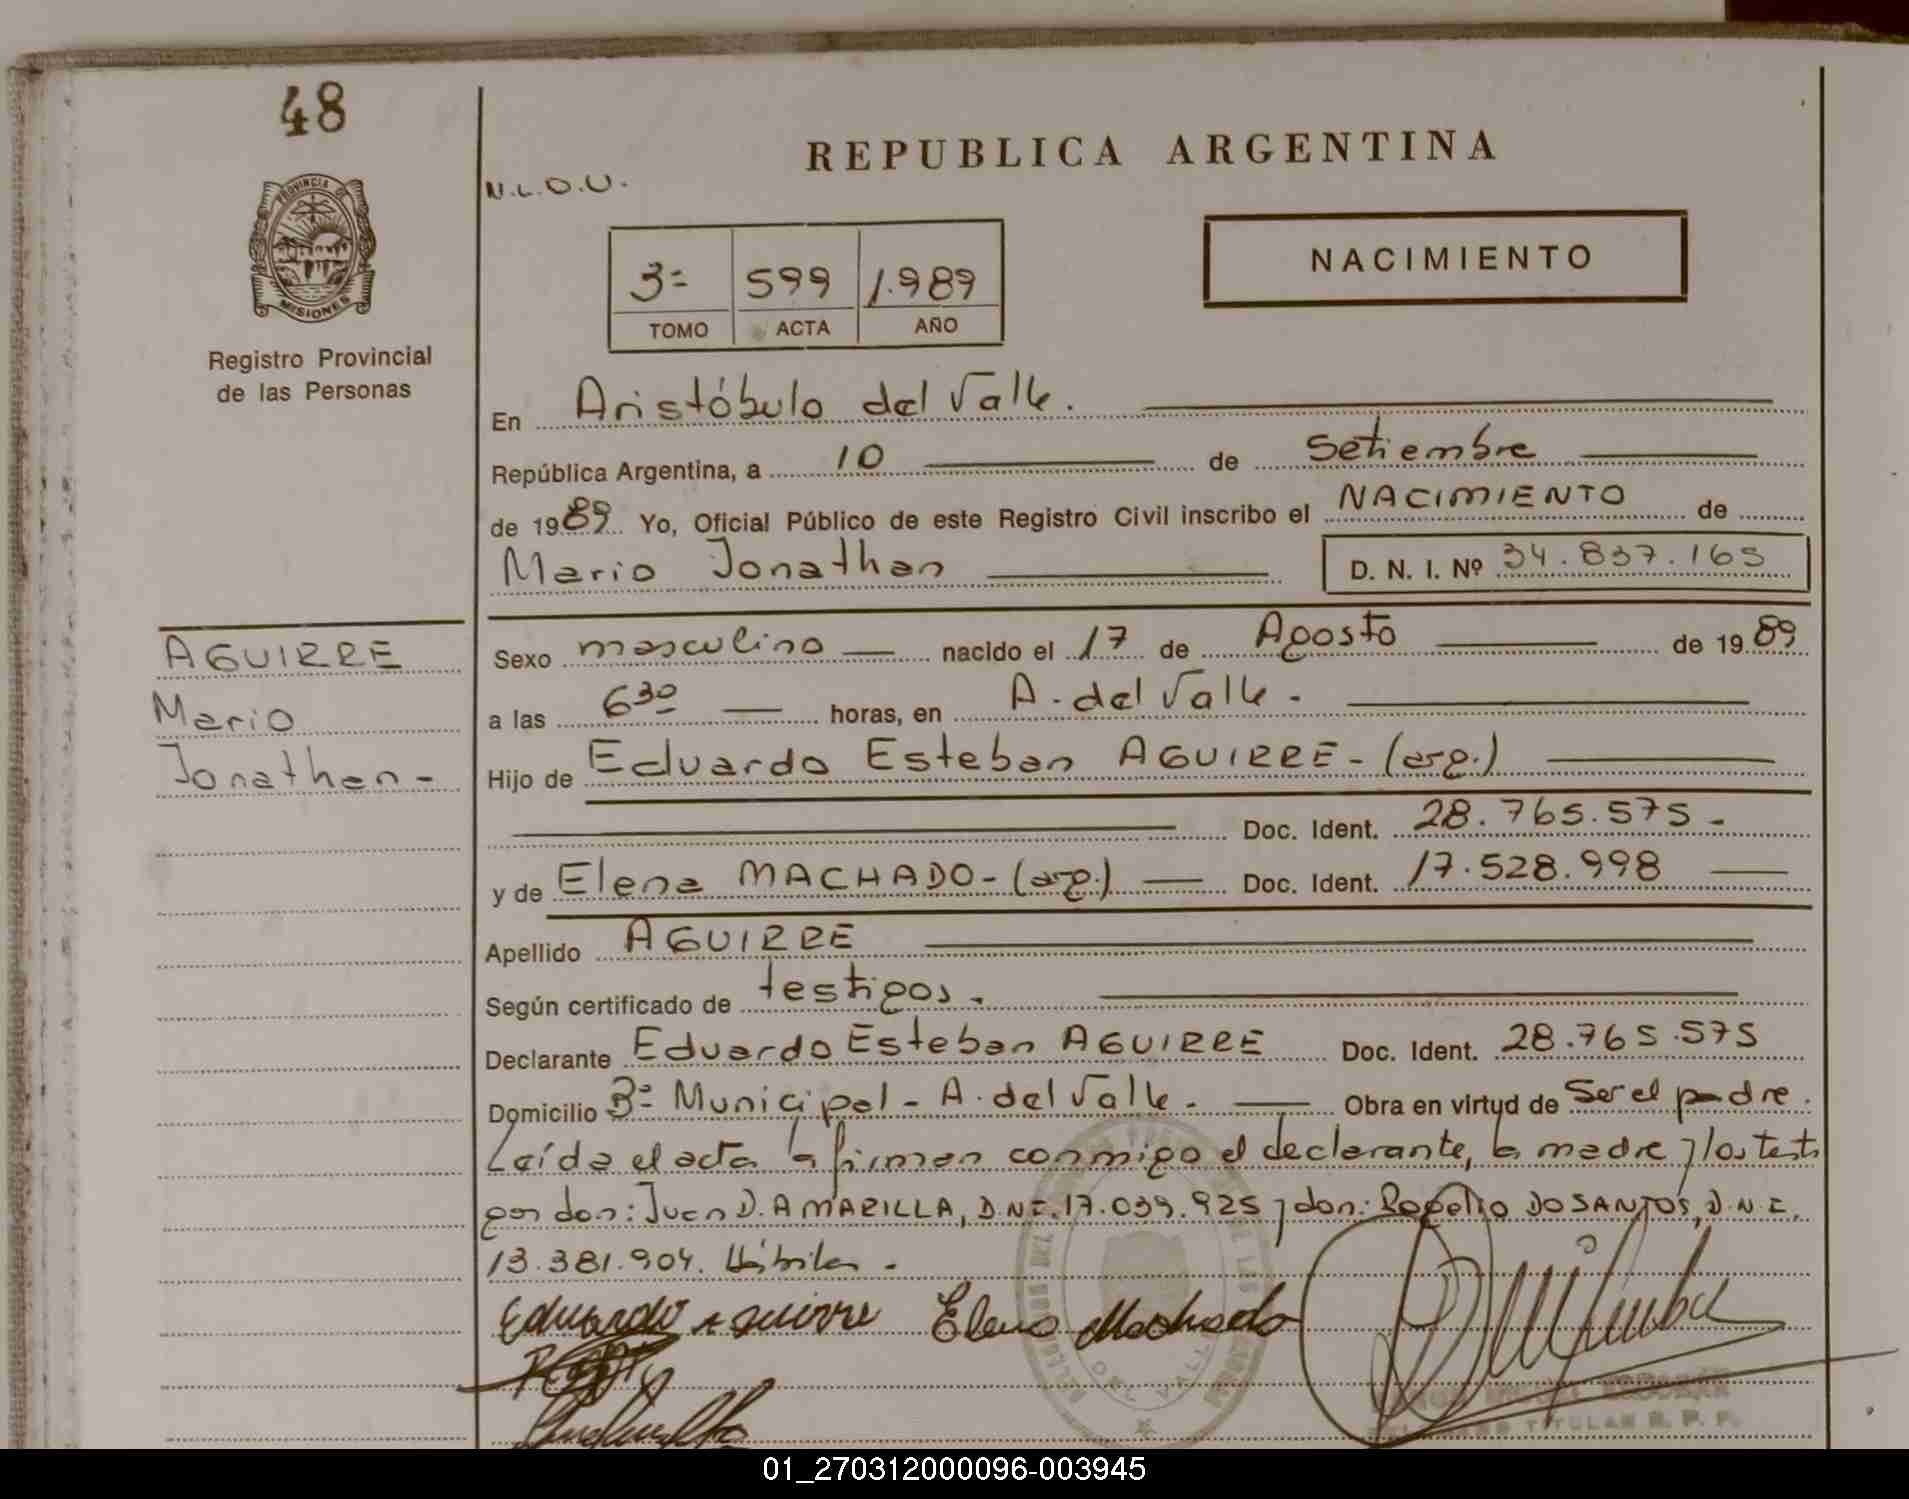 48
PROVINCIA DE
MISIONES
Registro Provincial
de las Personas
REPUBLICA ARGENTINA
N.L.O.U.
3=
599
1.989
TOMO
ACTA
AÑO
NACIMIENTO
En Aristóbulo del Valle.
República Argentina, a 10 de Setiembre
de 1989 Yo, Oficial Público de este Registro Civil inscribo el NACIMIENTO de
Mario Jonathan D. N. I. Nº 34.837.165
AGUIRRE
Mario
Jonathan-
Sexo masculino nacido el 17 de Agosto de 1989
a las 6 30 horas, en A. del Valle.
Hijo de Eduardo Esteban AGUIRRE - (arg.)
Doc. Ident. 28.765.575.-
y de Elena MACHADO - (arg.) Doc. Ident. 17.528.998
Apellido AGUIRRE
Según certificado de testigos.
Declarante Eduardo Esteban AGUIRRE Doc. Ident. 28.765.575
Domicilio Bº Municipal - A. del Valle. Obra en virtud de Ser el padre.
Leída el acta la firman conmigo el declarante, la madre y los testi
gos don: Juan D. AMARILLA, D.N.I. 17.039.925 y don: Rogelio DO SANTOS, D.N.I.
13.381.904. Hábiles.
Eduardo Aguirre Elena Machado
DEL VALLE
TITULAR R. P. P.
01_270312000096-003945